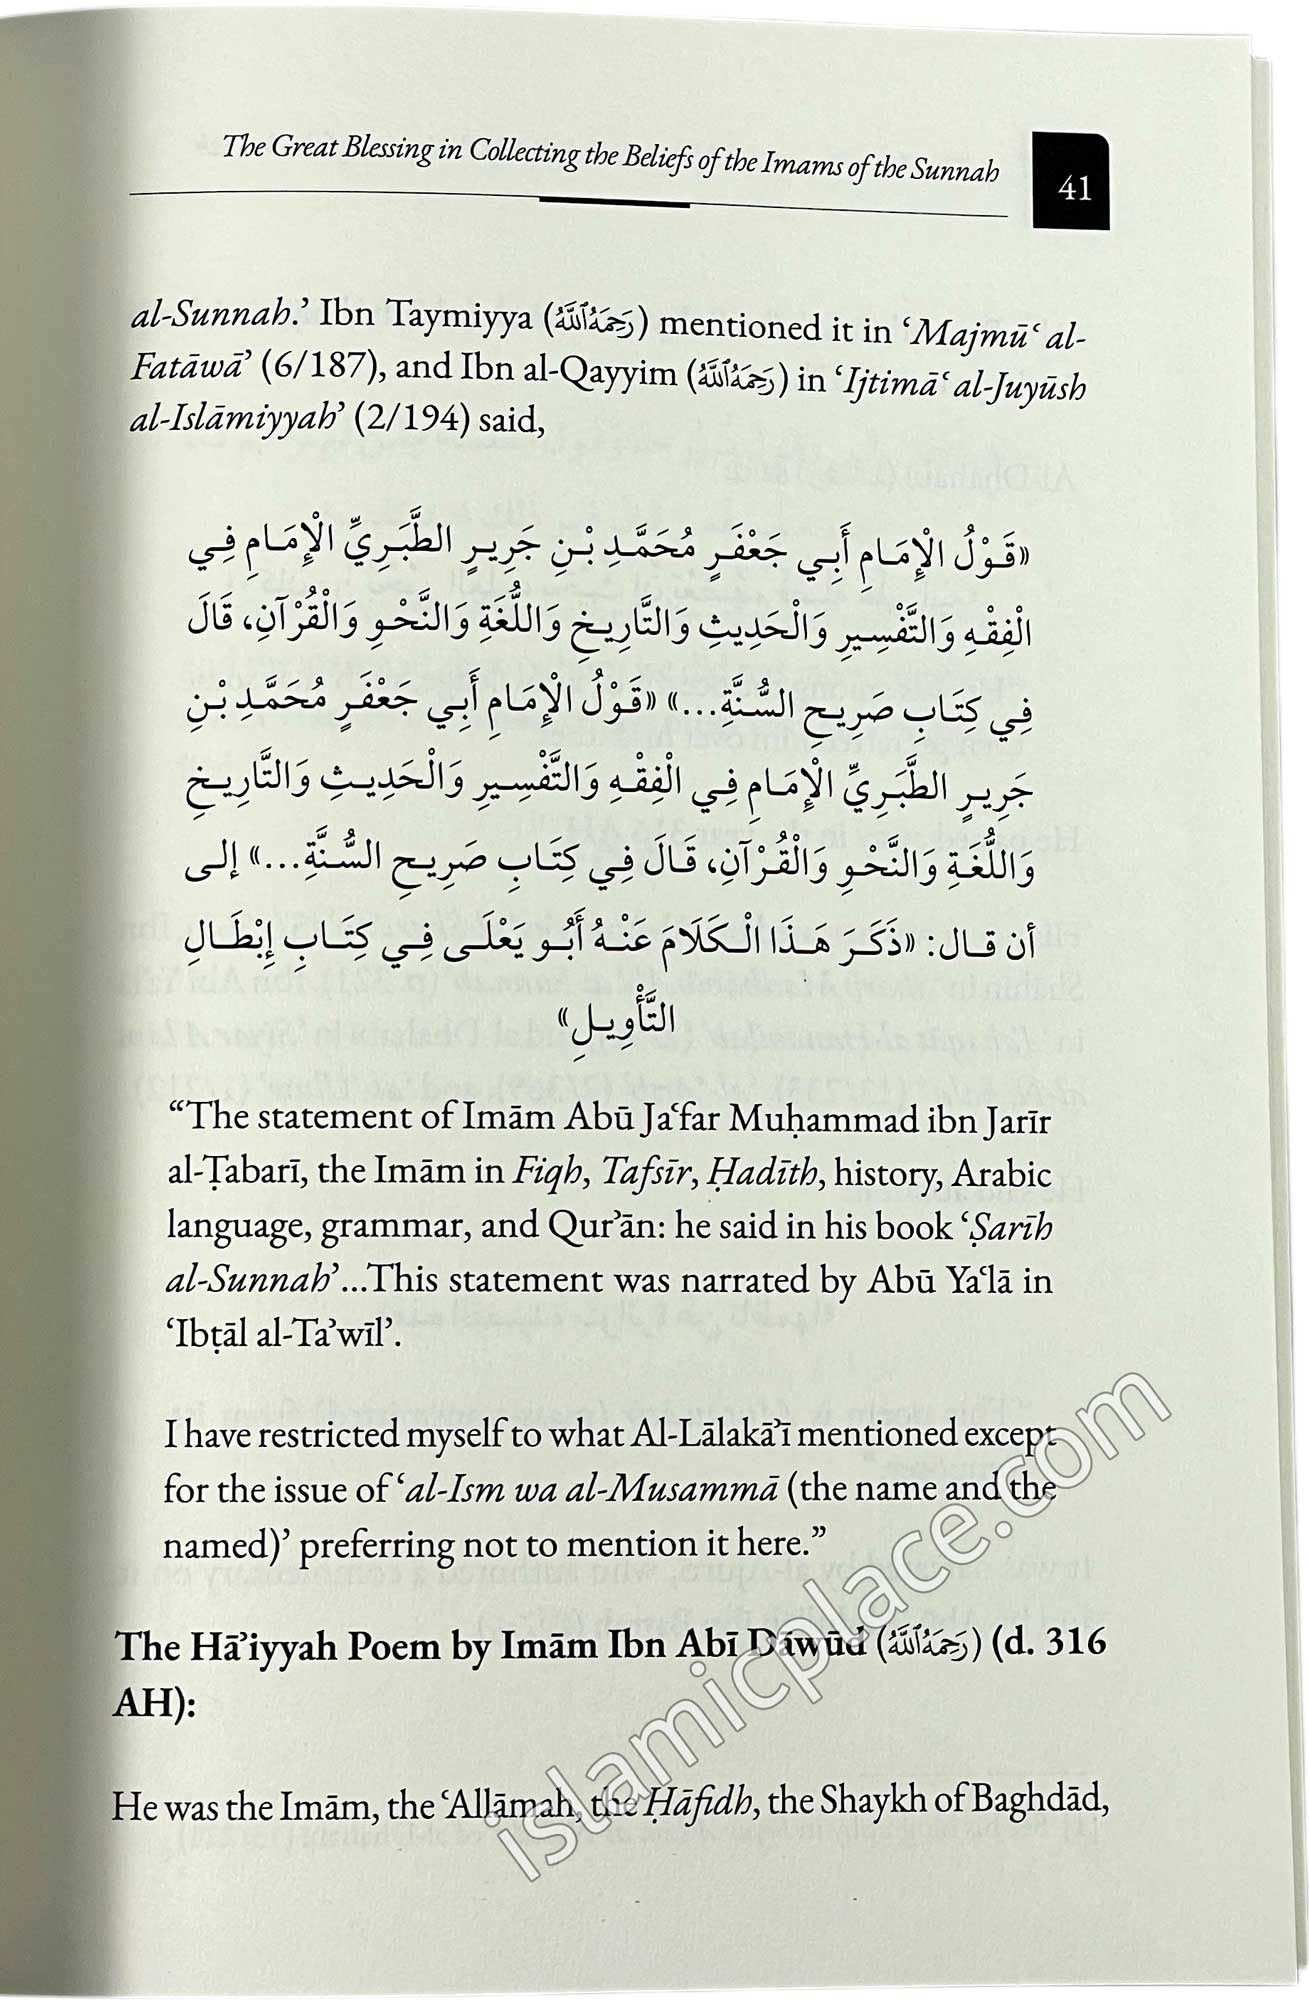 The Great Blessing in Collecting the Beliefs of the Imams of the Sunnah
41
al-Sunnah.’ Ibn Taymiyya (رَحِمَهُ ٱللَّهُ) mentioned it in ‘Majmūʿ al-
Fatāwā’ (6/187), and Ibn al-Qayyim (رَحِمَهُ ٱللَّهُ) in ‘Ijtimāʿ al-Juyūsh
al-Islāmiyyah’ (2/194) said,
«قَوْلُ الْإِمَامِ أَبِي جَعْفَرٍ مُحَمَّدِ بْنِ جَرِيرٍ الطَّبَرِيِّ الْإِمَامِ فِي
الْفِقْهِ وَالتَّفْسِيرِ وَالْحَدِيثِ وَالتَّارِيخِ وَاللُّغَةِ وَالنَّحْوِ وَالْقُرْآنِ، قَالَ
فِي كِتَابِ صَرِيحِ السُّنَّةِ...» «قَوْلُ الْإِمَامِ أَبِي جَعْفَرٍ مُحَمَّدِ بْنِ
جَرِيرٍ الطَّبَرِيِّ الْإِمَامِ فِي الْفِقْهِ وَالتَّفْسِيرِ وَالْحَدِيثِ وَالتَّارِيخِ
وَاللُّغَةِ وَالنَّحْوِ وَالْقُرْآنِ، قَالَ فِي كِتَابِ صَرِيحِ السُّنَّةِ...» إلى
أن قال: «ذَكَرَ هَذَا الْكَلَامَ عَنْهُ أَبُو يَعْلَى فِي كِتَابِ إِبْطَالِ
التَّأْوِيلِ»
“The statement of Imām Abū Jaʿfar Muḥammad ibn Jarīr
al-Ṭabarī, the Imām in Fiqh, Tafsīr, Ḥadīth, history, Arabic
language, grammar, and Qurʾān: he said in his book ‘Ṣarīh
al-Sunnah’...This statement was narrated by Abū Yaʿlā in
‘Ibṭāl al-Taʾwīl’.
I have restricted myself to what Al-Lālakāʾī mentioned except
for the issue of ‘al-Ism wa al-Musammā (the name and the
named)’ preferring not to mention it here.”
The Hāʾiyyah Poem by Imām Ibn Abī Dāwūd (رَحِمَهُ ٱللَّهُ) (d. 316
AH):
He was the Imām, the ʿAllāmah, the Ḥāfidh, the Shaykh of Baghdād,
islamicplace.com